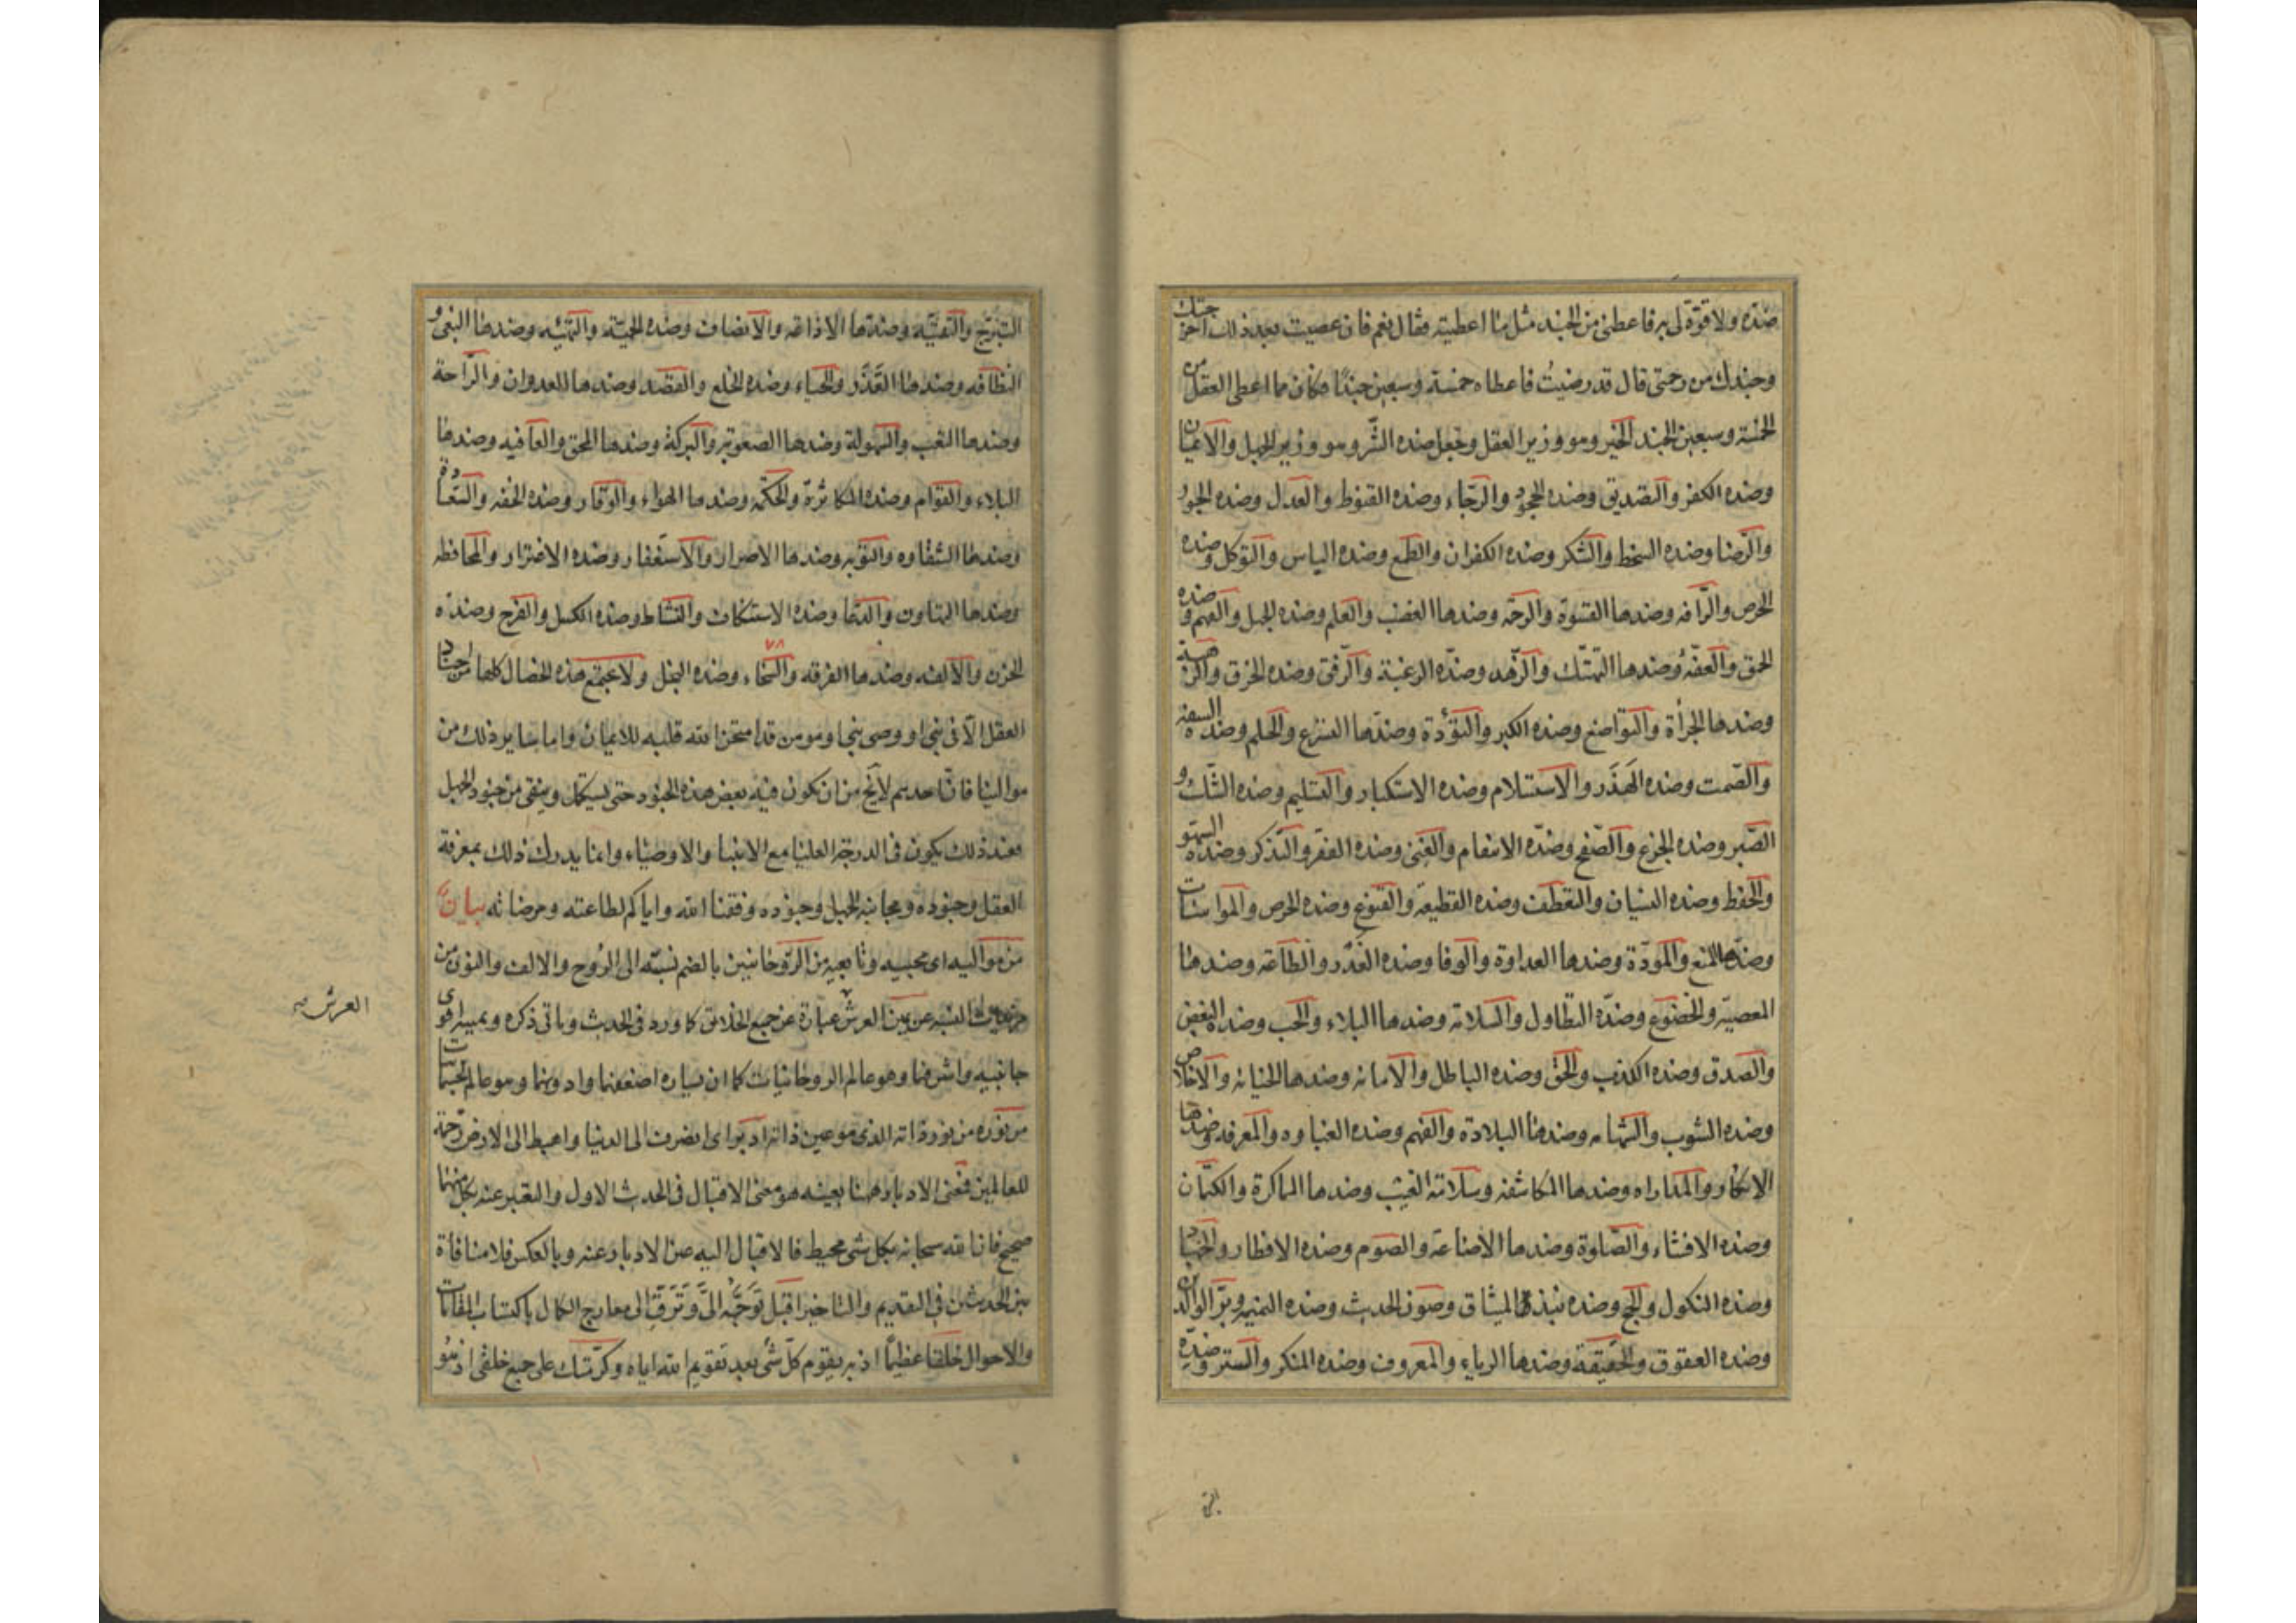 ضدّه ولا قوّة لى به فاعطنى من الجند مثل ما اعطيته فقال نعم فان عصيت بعد ذلك اخرجتك
وجندك من رحمتى قال قد رضيتُ فاعطاه خمسة وسبعين جندًا فكان مما اعطى العقل من
الخمسة وسبعين الجند الخير وهو وزير العقل وجعل ضده الشّر وهو وزير الجهل والايمان
وضده الكفر والتصديق وضده الجحود والرّجاء وضده القنوط والعدل وضده الجور
والرّضا وضده السخط والشكر وضده الكفران والطمع وضده الياس والتوكل وضده
الحرص والرّافه وضدها القسوة والرحمة وضدها الغضب والعلم وضده الجهل والفهم وضده
الحمق والعفّة وضدها التهتّك والزّهد وضدّه الرغبة والرّفق وضده الخرق والرهبة
وضدها الجرأة والتواضع وضده الكبر والتؤدة وضدّها التسرّع والحلم وضده السفه
والصّمت وضده الهَذَر والاستسلام وضده الاستكبار والتسليم وضده الشّك و
الصّبر وضده الجزع والصّفح وضدّه الانتقام والغنى وضده الفقر والتذكر وضده السّهو
والحفظ وضده النسيان والتعطف وضده القطيعة والقنوع وضده الحرص والمواسات
وضدّها المنع والمودّة وضدها العداوة والوفا وضده الغَدْر والطاعة وضدها
المعصيّة والخضوع وضدّه التطاول والسلامة وضدها البلاء والحب وضده البغض
والصدق وضده الكذب والحق وضده الباطل والامانه وضدها الخيانه والاخلاص
وضده الشوب والشهامه وضدها البلادة والفهم وضده الغباوه والمعرفه وضدها
الانكار والمداراه وضدها المكاشفه وسلامة الغيب وضدها المماكرة والكتمان
وضده الافشاء والصّلوة وضدها الاضاعة والصوم وضده الافطار والجهاد
وضده النكول والحج وضده نبذ الميثاق وصون الحديث وضده النميمه وبرّ الوالدين
وضده العقوق والحقيقة وضدها الرياء والمعروف وضده المنكر والستر وضدّه
التبرّج والتقيّه وضدّها الاذاعه والانصاف وضده الحميّة والتهيئه وضدها البغى و
النظافه وضدها القَذَر والحياء وضده الخلع والقصد وضدها العدوان والرّاحة
وضدها التعب والسهولة وضدها الصعوبة والبركة وضدها المحق والعافيه وضدها
البلاء والقوام وضده المكاثرة والحكمه وضدها الهواء والوقار وضده الخفه والسّعادة
وضدها الشقاوه والتوبه وضدها الاصرار والاستغفار وضده الاغترار والمحافظه
وضدها التهاون والدعا وضده الاستنكاف والنشاط وضده الكسل والفرح وضدّه
الحزن والالفه وضدها الفرقه والسّخاء وضده البخل ولا تجتمع هذه الخصال كلها من اجناد
العقل الّا فى نبى او وصى نبى او مومن قد امتحن الله قلبه للايمان واما ساير ذلك من
موالينا فانّ احدهم لا يخ من ان يكون فيه بعض هذه الجنود حتى يستكمل وينقى من جنود الجهل
فعند ذلك يكون فى الدرجة العليا مع الانبيا والاوصياء وانما يدرك ذلك بمعرفة
العقل وجنوده ومجانبة الجهل وجنوده وفقنا الله واياكم لطاعته ومرضاته بيان
من مواليه اى محبيه وتابعيه من الرّوحانيين بالضم نسبته الى الرُوح والالف والنون من
النسبه عن يمين العرش عبارة عن جميع الخلائق كما ورد فى الحديث وياتى ذكره ويمينه اقوى
جانبيه واشرفها وهو عالم الروحانيات كما ان يساره اضعفهما وادونهما وهو عالم الجسمانيات
من نوره من نور ذاته الذى هو عين ذاته ادبر اى انصرف الى الدنيا واهبط الى الارض رحمة
للعالمين فمعنى الادبار ههنا بعينه هو معنى الاقبال فى الحديث الاول والتعبير عنه بكل منهما
صحيح فان الله سبحانه بكل شى محيط فالاقبال اليه عين الادبار عنه وبالعكس فلا منافاة
بين الحديثين فى التقديم والتاخير اقبل تَوَجَّهْ الىَّ وَتَرَقَّ الى معارج الكمال باكتساب المقامات
والاحوال خلقا عظيمًا اذ به يقوم كلّ شئ بعد تقويم الله اياه وكرّمتك على جميع خلقى اذ هو
العرش